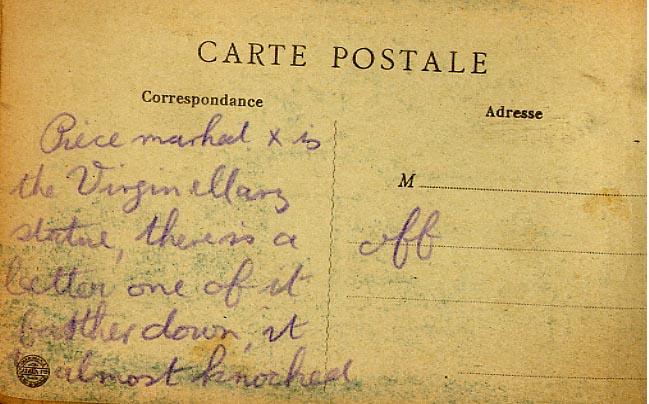 CARTE POSTALE
Correspondance
Adresse
Piece marked x is
the Virgin Mary
statue, there is a
better one of it
farther down, it
almost knocked
M
off